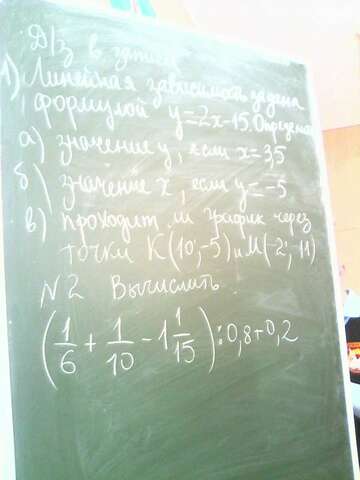 Д/з в
1) Линейная зависимость задана
формулой y=2x-15. Определи
а) значение y, если x=3,5
б) значение x, если y=-5
в) проходит ли график через
точки K(10;-5) и M(-2;-11)
N2 Вычислить.
(1/6 + 1/10 - 1 1/15) : 0,8 + 0,2